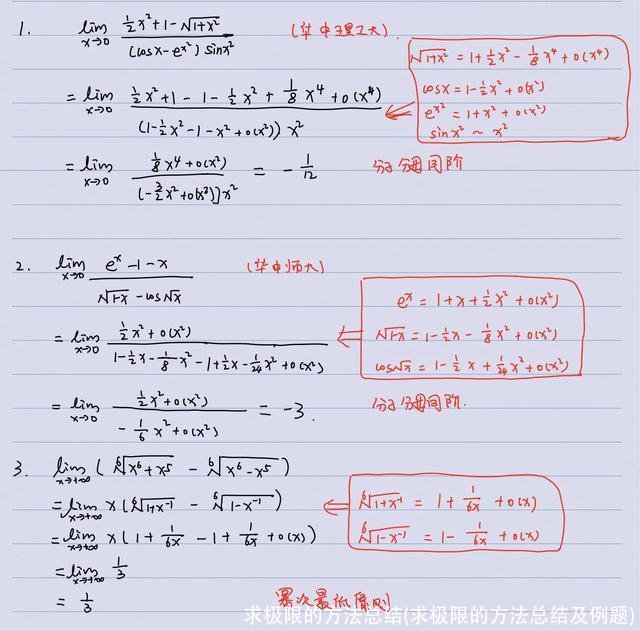 1. lim x→0 (½x²+1-√(1+x²)) / ((cosx-e^(x²)) sinx²) (华中理工大)
√(1+x²) = 1+½x²-⅛x⁴+o(x⁴)
cosx=1-½x²+o(x²)
e^(x²) = 1+x²+o(x²)
sinx² ~ x²
= lim x→0 (½x²+1-1-½x²+⅛x⁴+o(x⁴)) / ((1-½x²-1-x²+o(x²)) x²)
= lim x→0 (⅛x⁴+o(x²)) / ((-3/2x²+o(x²)]x²) = -1/12 分子分母同阶
2. lim x→0 (e^x-1-x) / (√(1-x)-cos√x) (华中师大)
e^x = 1+x+½x²+o(x²)
√(1-x) = 1-½x-⅛x²+o(x²)
cos√x = 1-½x+1/24x²+o(x²)
= lim x→0 (½x²+o(x²)) / (1-½x-⅛x²-1+½x-1/24x²+o(x²))
= lim x→0 (½x²+o(x²)) / (-1/6x²+o(x²)) = -3. 分子分母同阶.
3. lim x→+∞ (⁶√(x⁶+x⁵) - ⁶√(x⁶-x⁵))
= lim x→+∞ x(⁶√(1+x⁻¹) - ⁶√(1-x⁻¹))
⁶√(1+x⁻¹) = 1+1/(6x)+o(x)
⁶√(1-x⁻¹) = 1-1/(6x)+o(x)
= lim x→+∞ x(1+1/(6x)-1+1/(6x)+o(x))
= lim x→+∞ 1/3
= 1/3 幂次最低原则
求极限的方法总结(求极限的方法总结及例题)